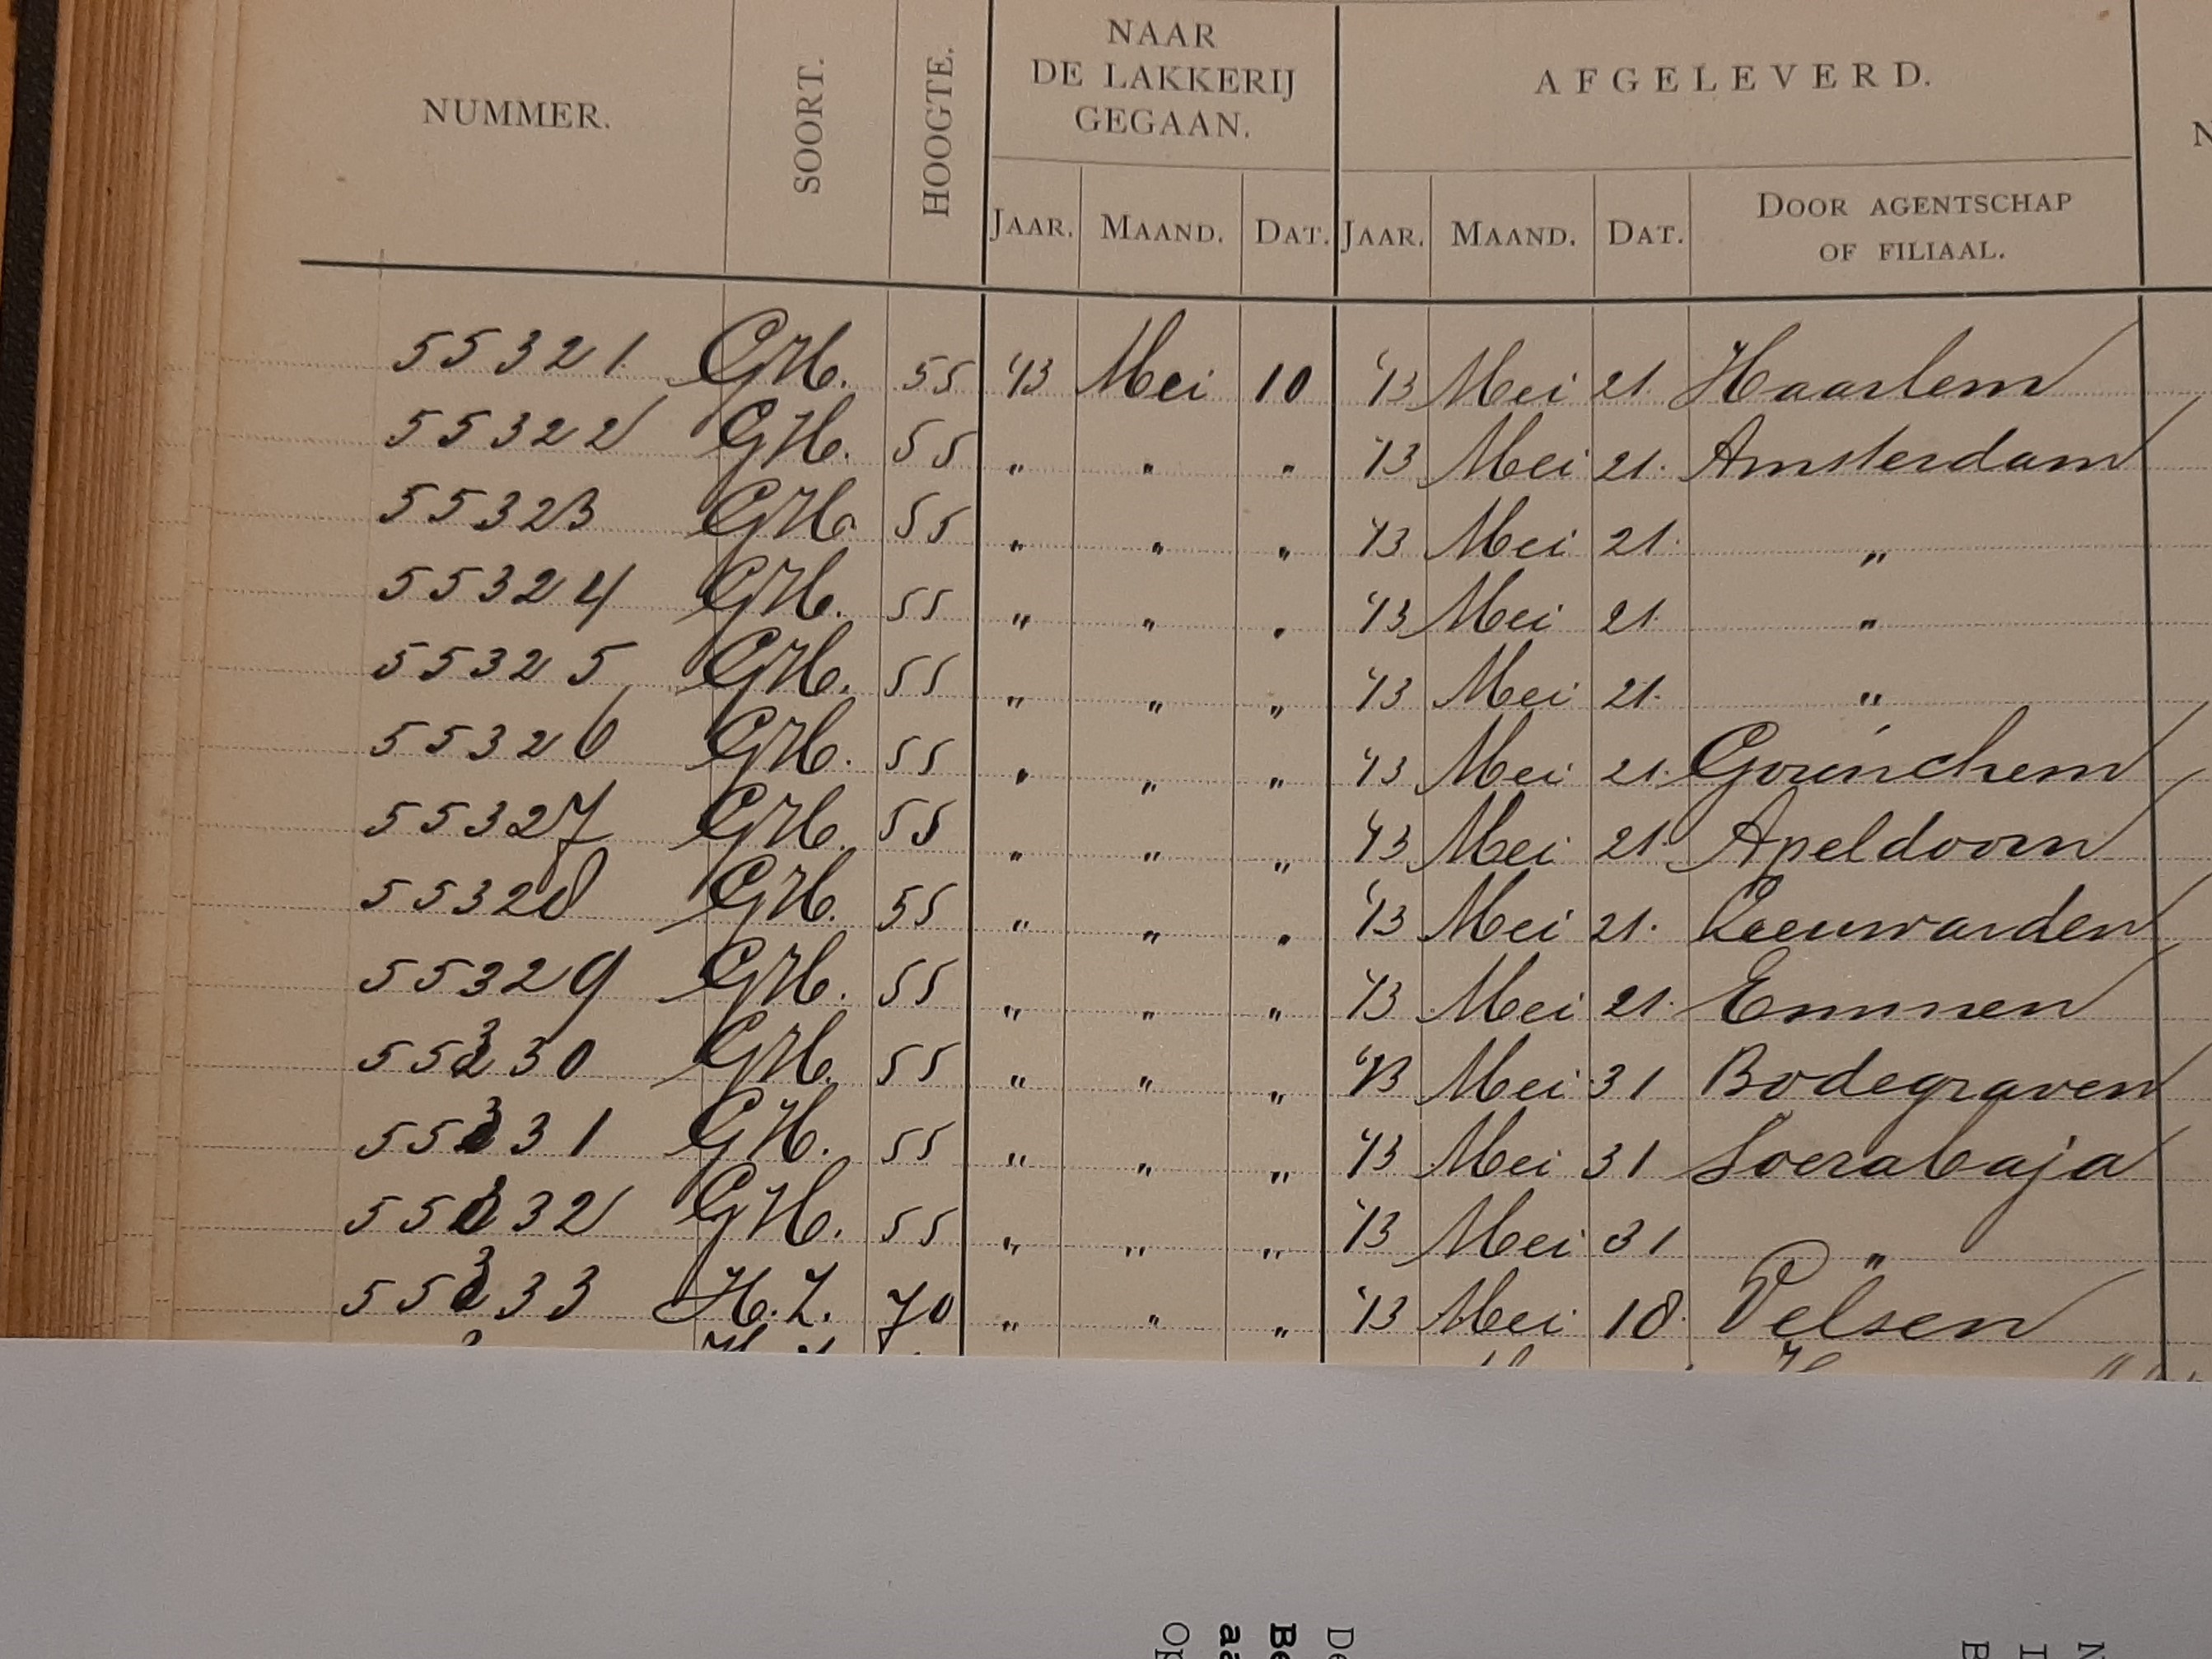 NUMMER. SOORT. HOOGTE. NAAR DE LAKKERIJ GEGAAN. AFGELEVERD. N
JAAR. MAAND. DAT. JAAR. MAAND. DAT. DOOR AGENTSCHAP OF FILIAAL.
55321. GH. 55 '13 Mei 10 '13 Mei 21. Haarlem
55322 GH. 55 " " " '13 Mei 21. Amsterdam
55323 GH 55 " " " '13 Mei 21. "
55324 GH. 55 " " " '13 Mei 21. "
55325 GH. 55 " " " '13 Mei 21. "
55326 GH. 55 " " " '13 Mei 21. Gorinchem
55327 GH. 55 " " " '13 Mei 21. Apeldoorn
55328 GH. 55 " " " '13 Mei 21. Leeuwarden
55329 GH. 55 " " " '13 Mei 21. Emmen
55330 GH. 55 " " " '13 Mei 31 Bodegraven
55331 GH. 55 " " " '13 Mei 31 Soerabaja
55332 GH. 55 " " " '13 Mei 31 "
55333 H.Z. 70 " " " '13 Mei 18. Velsen